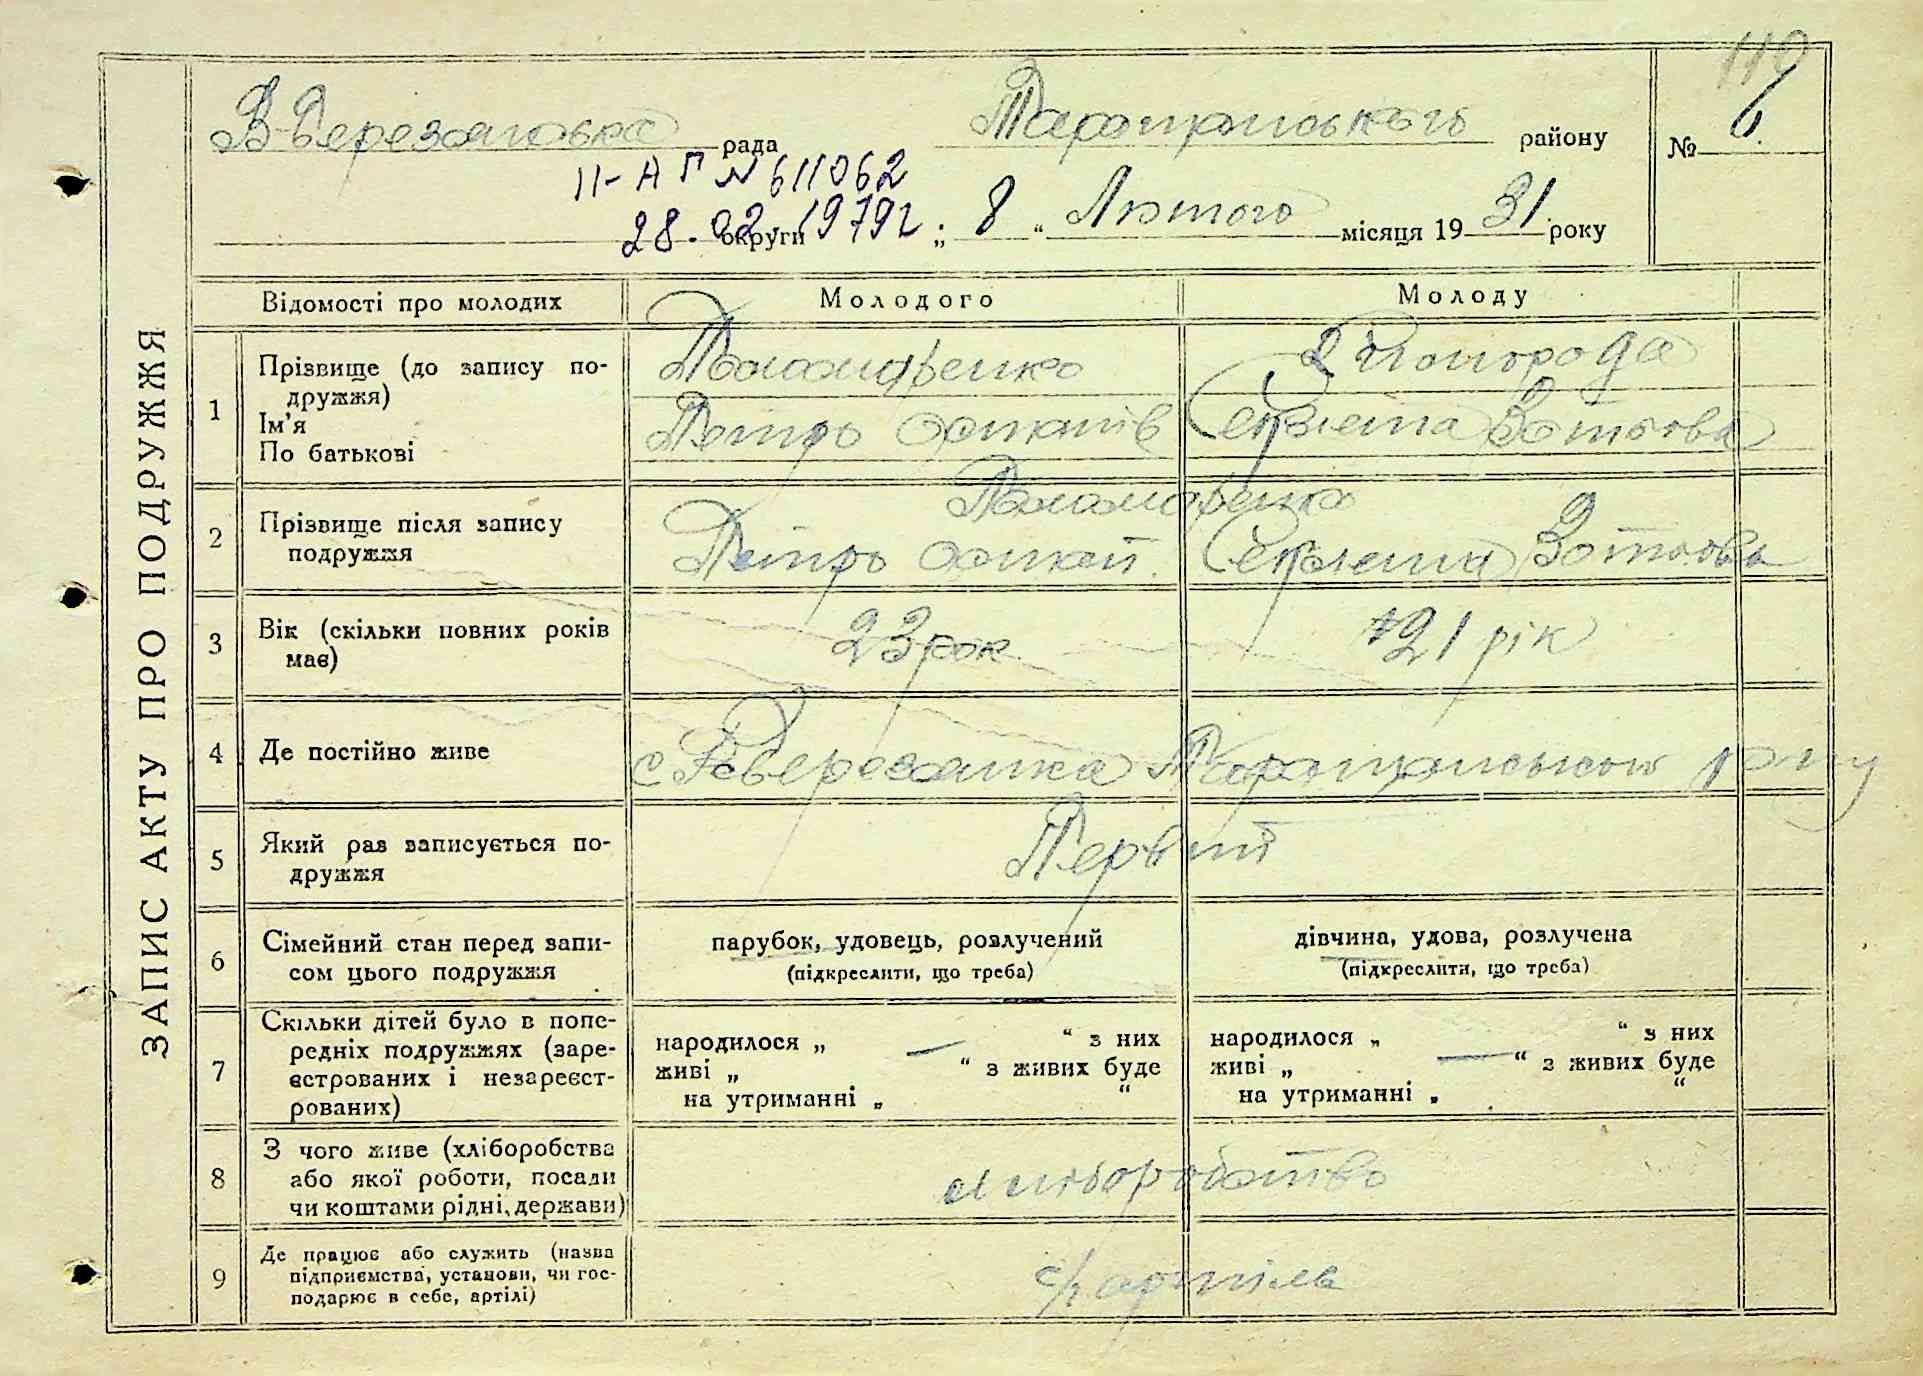 119
В-Березянська рада Таращанського району № 6
II-АП № 611062
28.02.1979г округи „ 8 “ Лютого місяця 19 31 року
ЗАПИС АКТУ ПРО ПОДРУЖЖЯ
Відомості про молодих Молодого Молоду
1 Прізвище (до запису подружжя) Паламаренко
Ім'я
По батькові Петро Зотова
2 Прізвище після запису подружжя Паламаренко
Петро Зотова
3 Вік (скільки повних років має) 23 рок 21 рік
4 Де постійно живе с Березянка Таращанського р-ну
5 Який раз записується подружжя Первий
6 Сімейний стан перед записом цього подружжя парубок, удовець, розлучений дівчина, удова, розлучена
(підкреслити, що треба) (підкреслити, що треба)
7 Скільки дітей було в попередніх подружжях (зареєстрованих і незареєстрованих) народилося „ — “ з них народилося „ — “ з них
живі „ “ з живих буде живі „ “ з живих буде
на утриманні „ “ на утриманні „ “
8 З чого живе (хліборобства або якої роботи, посади чи коштами рідні, держави) хліборобство
9 Де працює або служить (назва підприємства, установи, чи господарює в себе, артілі) с/г артіль